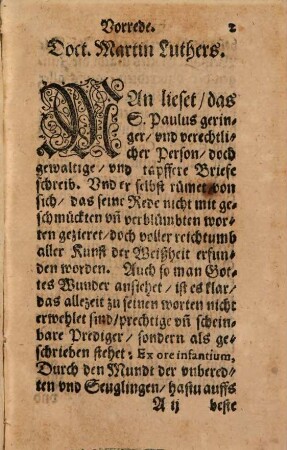 Vorrede. 2
Doct. Martin Luthers.
MAn lieset / das
S. Paulus gerin-
ger / vnd verechtli-
cher Person / doch
gewaltige / vnd tapffere Briefe
schreib. Vnd er selbst rümet von
sich / das seine Rede nicht mit ge-
schmückten vñ verblümbten wor-
ten gezieret / doch voller reichtumb
aller Kunst der Weißheit erfun-
den worden. Auch so man Got-
tes Wunder ansiehet / ist es klar /
das allezeit zu seinen worten nicht
erwehlet sind / prechtige vñ schein-
bare Prediger / sondern als ge-
schrieben stehet : Ex ore infantium,
Durch den Mundt der vnbered-
ten vnd Seuglingen / hastu auffs
A ij beste